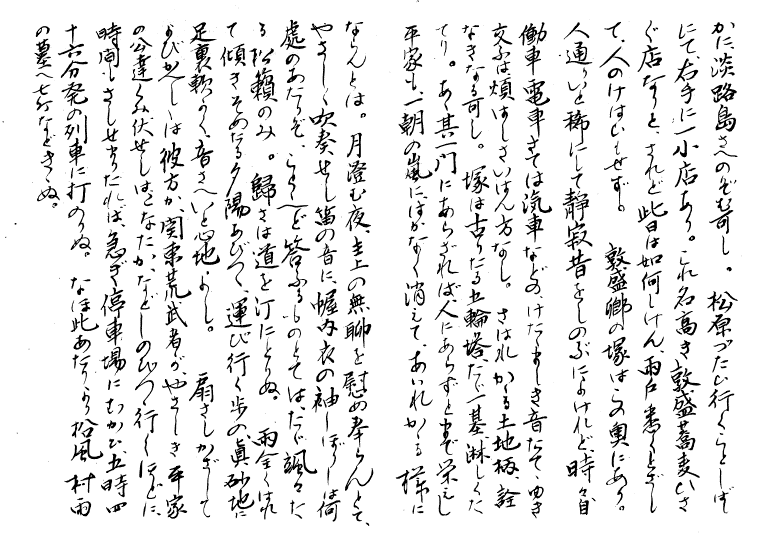 かに淡路島さへのぞむ可し。松原づたひ行くことしばし
にて、右手に一小店あり。これ名高き敦盛蕎麦ひさ
ぐ店なりと、されど此日は如何しけん、雨戸悉くとざし
て、人のけはひもせず。敦盛卿の塚はこの奥にあり。
人通りいと稀にして静寂昔をしのぶによけれど、時々自
働車電車さては汽車などの、けたゝましき音たてゝゆき
交ふは煩はしさいはん方なし。さはれかゝる土地柄、詮
なきなる可し。塚は古りたる五輪塔、たゞ一基淋しくた
てり。あゝ其一門にあらざれば人にあらずとまで栄えし
平家も、一朝の嵐にはかなく消えて、あはれかゝる様に
ならんとは。月澄む夜、主上の無聊を慰め奉らんとて、
やさしく吹奏せし笛の音に、幄内衣の袖しぼりしは何
處のあたりぞ、とへど答ふるものとては、たゞ颯々た
る松籟のみ。歸さは道を汀にとりぬ。雨全くはれ
て傾きそめたる夕陽あびつゝ、運び行く歩の真砂地に
足裏軟かく、音さへいと心地よし。扇さしかざして
よび返しゝは彼方か、関東荒武者が、やさしき平家
の公達くみ伏せしはこなたか、などしのびつゝ行くほどに、
時間もさしせまりたれば、急ぎ停車場にむかひ五時四
十六分発の列車に打のりぬ。なほ此あたりより松風村雨
の墓へ七丁などきゝぬ。